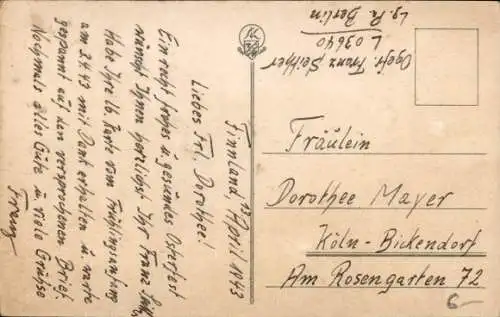 Finnland, 13. April 1943
Liebes Frl. Dorothee!
Ein recht frohes u. gesundes Osterfest
wünscht Ihnen herzlichst Ihr Franz
Habe Ihre lb. Karte vom Frühlingsanfang
am 3.4.43 mit Dank erhalten u. warte
gespannt auf den versprochenen Brief.
Nochmals alles Gute u. viele Grüsse
Franz
Ogefr. Franz Seither
L 03640
Lg. Pa. Berlin
Fräulein
Dorothee Mayer
Köln-Bickendorf
Am Rosengarten 72
6-